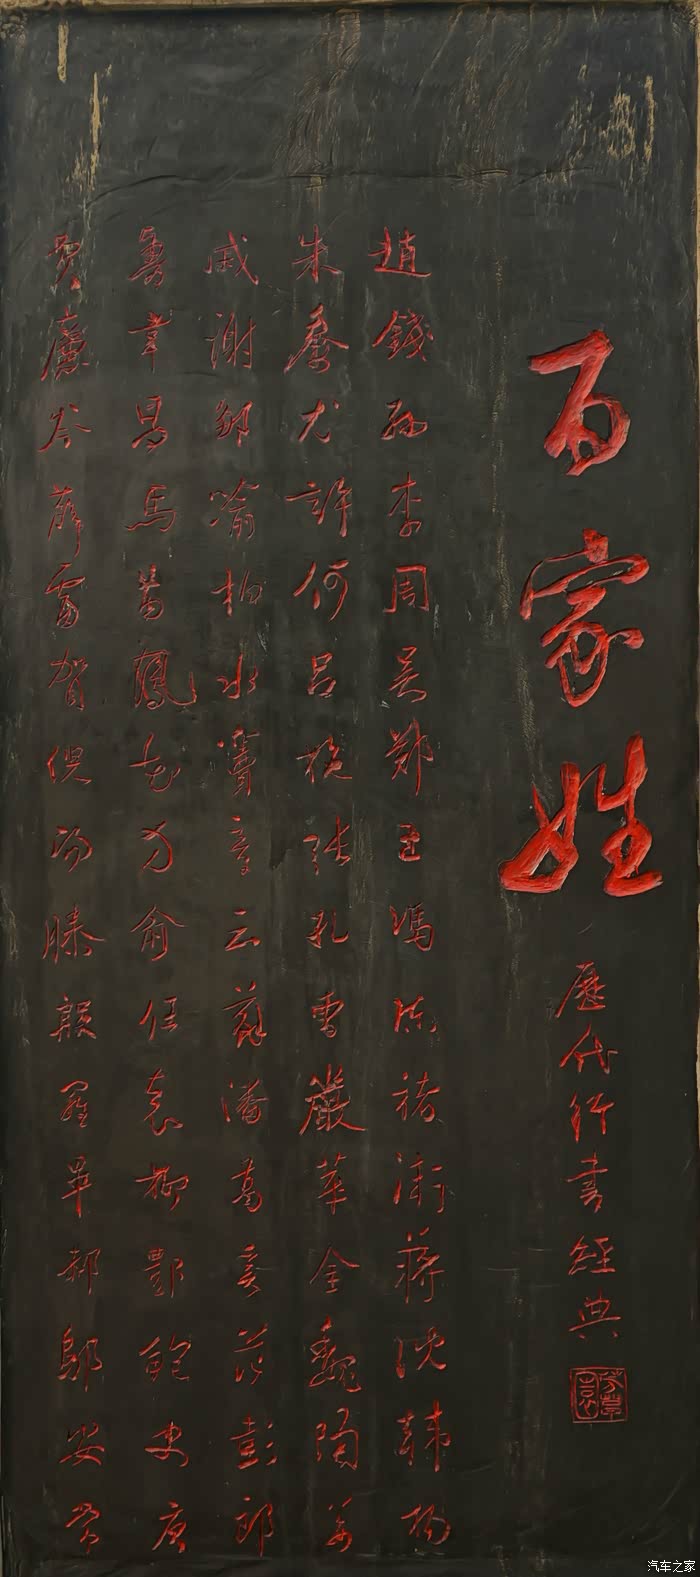 百家姓
歷代行書經典
趙錢孫李周吳鄭王馮陳褚衛蔣沈韓楊
朱秦尤許何呂施張孔曹嚴華金魏陶姜
戚謝鄒喻柏水竇章云蘇潘葛奚范彭郎
魯韋昌馬苗鳳花方俞任袁柳酆鮑史唐
費廉岑薛雷賀倪湯滕殷羅畢郝鄔安常
汽车之家